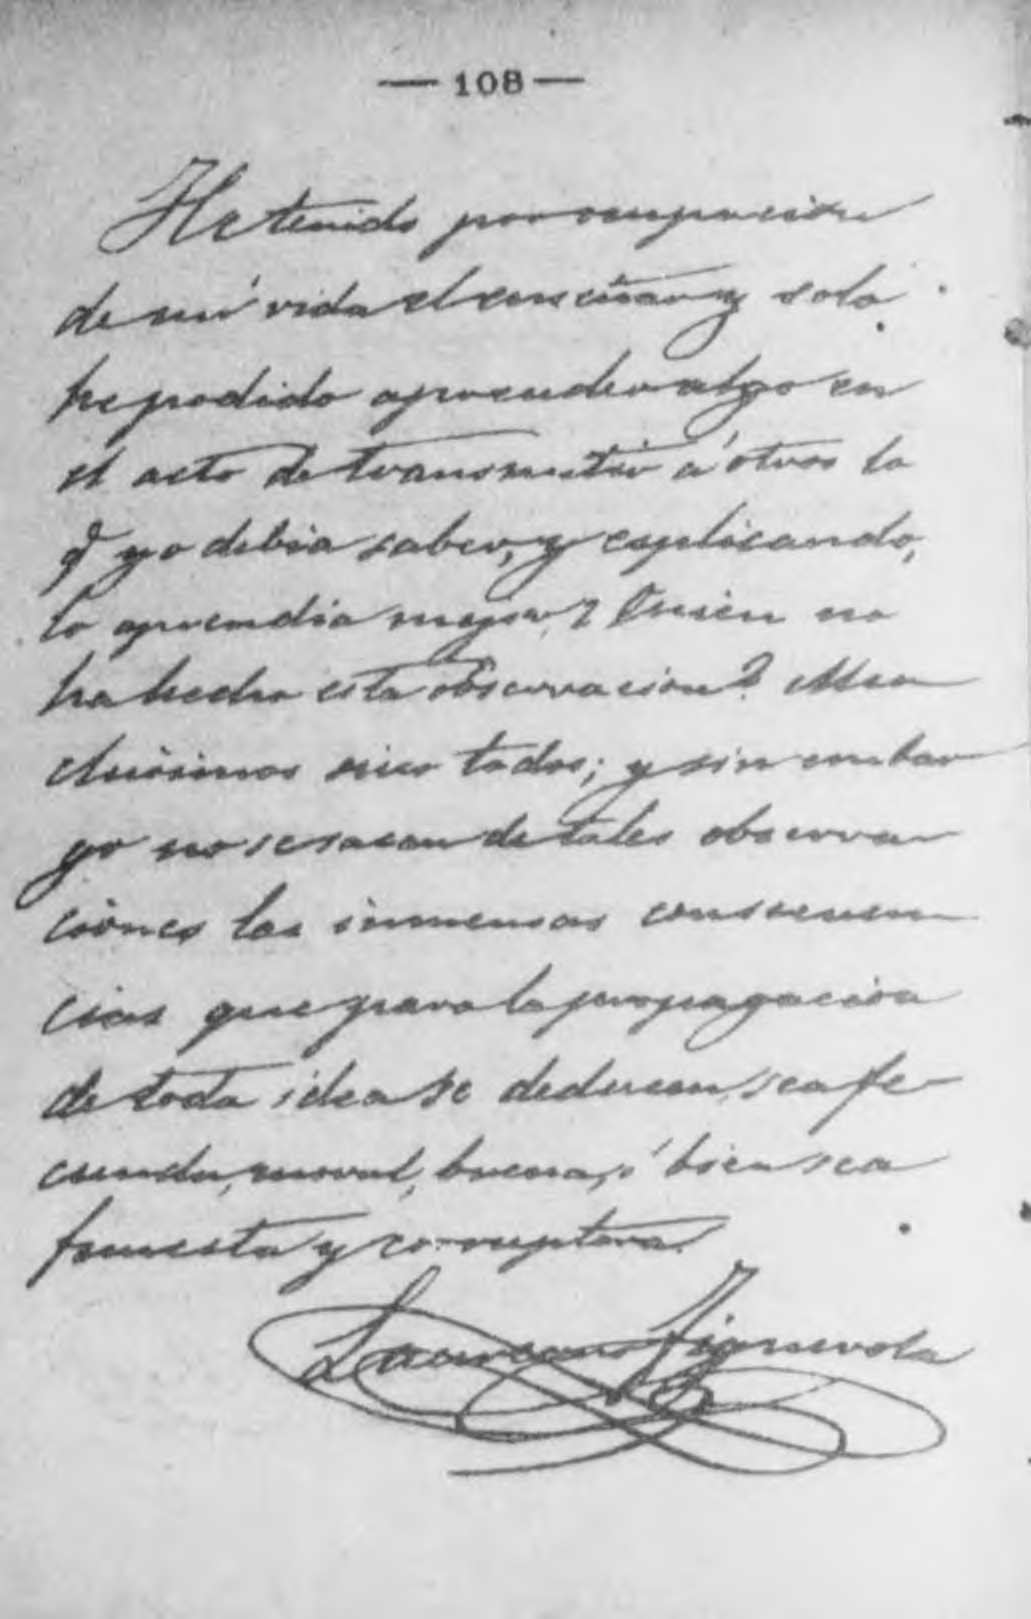 — 108 —
He tenido por ocupacion
de mi vida el enseñar y solo
he podido aprender algo en
el acto de transmitir á otros lo
q̃ yo debia saber, y esplicando,
lo aprendia mejor, ¿Quien no
ha hecho esta observacion? Mu
chisimos sino todos; y sin embar
go no se sacan de tales observa
ciones las inmensas consecuen
cias que para la propagacion
de toda idea se deducen, sea fe
cunda, moral, buena, ó bien sea
funesta y corruptora.
Laureano Figuerola